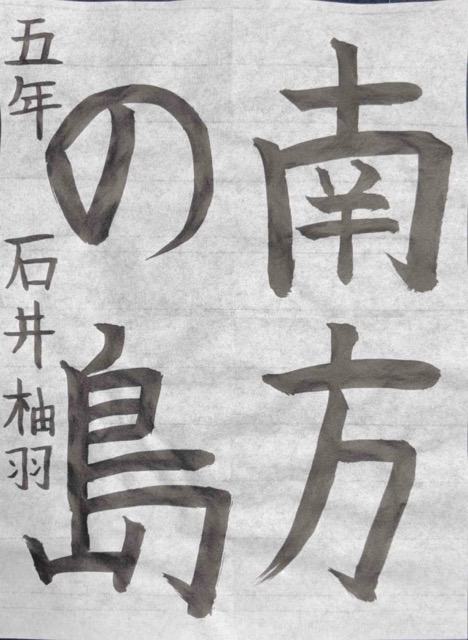 南方
の島
五年 石井柚羽